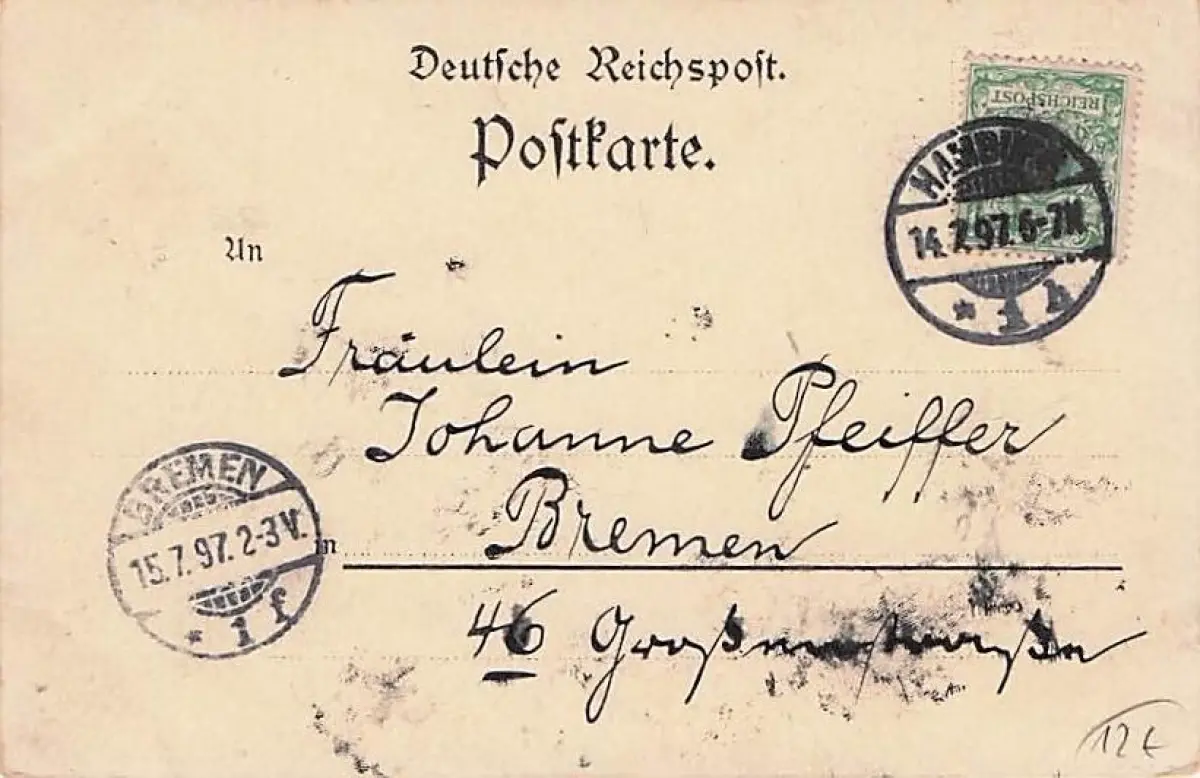 Deutsche Reichspost.
Postkarte.
REICHSPOST
HAMBURG
14.7.97.6-7N.
* 1 h
An
Fräulein
Johanne Pfeiffer
BREMEN
15.7.97.2-3V.
* 1 f
in Bremen
46
12 €